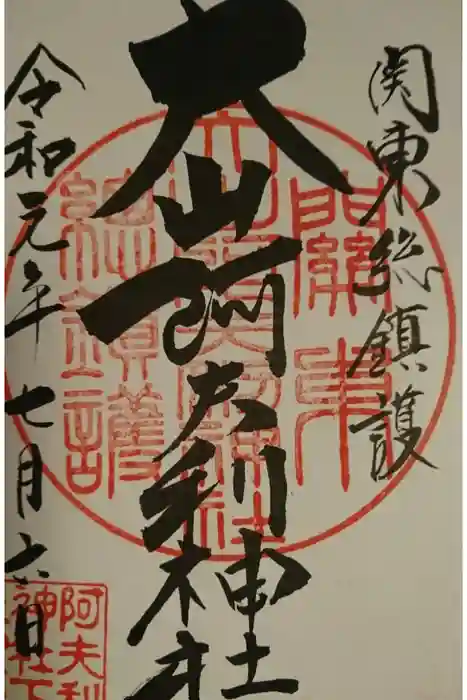 関東総鎮護
大山阿夫利神社
本社
令和元年七月六日
關東
總鎮護
阿夫利
神社下